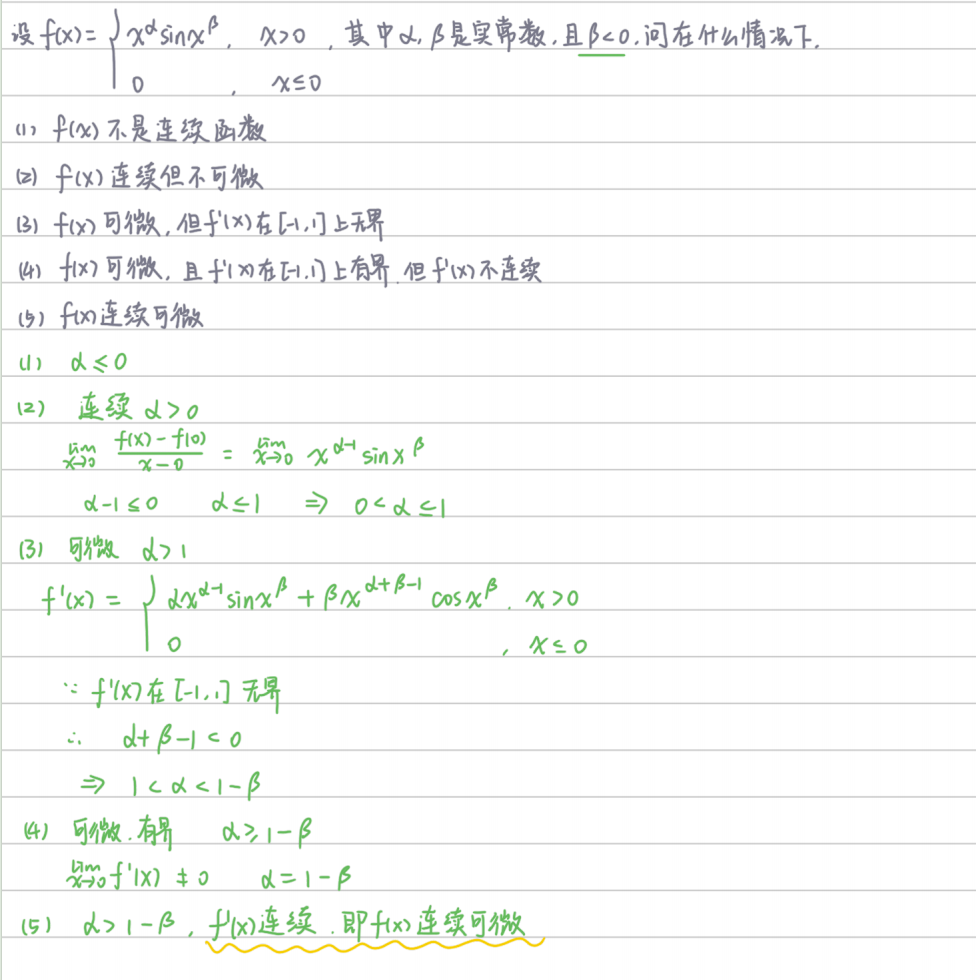 设 f(x) = { x^α sin x^β , x>0 , 其中 α, β 是实常数, 且 β<0, 问在什么情况下.
0 , x≤0
(1) f(x) 不是连续函数
(2) f(x) 连续但不可微
(3) f(x) 可微, 但 f'(x) 在 [-1,1] 上无界
(4) f(x) 可微, 且 f'(x) 在 [-1,1] 上有界, 但 f'(x) 不连续
(5) f(x) 连续可微
(1) α ≤ 0
(2) 连续 α > 0
lim_{x→0} (f(x) - f(0))/(x - 0) = lim_{x→0} x^{α-1} sin x^β
α-1 ≤ 0 α ≤ 1 ⇒ 0 < α ≤ 1
(3) 可微 α > 1
f'(x) = { αx^{α-1} sin x^β + βx^{α+β-1} cos x^β , x > 0
0 , x ≤ 0
∵ f'(x) 在 [-1,1] 无界
∴ α + β - 1 < 0
⇒ 1 < α < 1 - β
(4) 可微, 有界 α ≥ 1 - β
lim_{x→0} f'(x) ≠ 0 α = 1 - β
(5) α > 1 - β, f'(x) 连续, 即 f(x) 连续可微